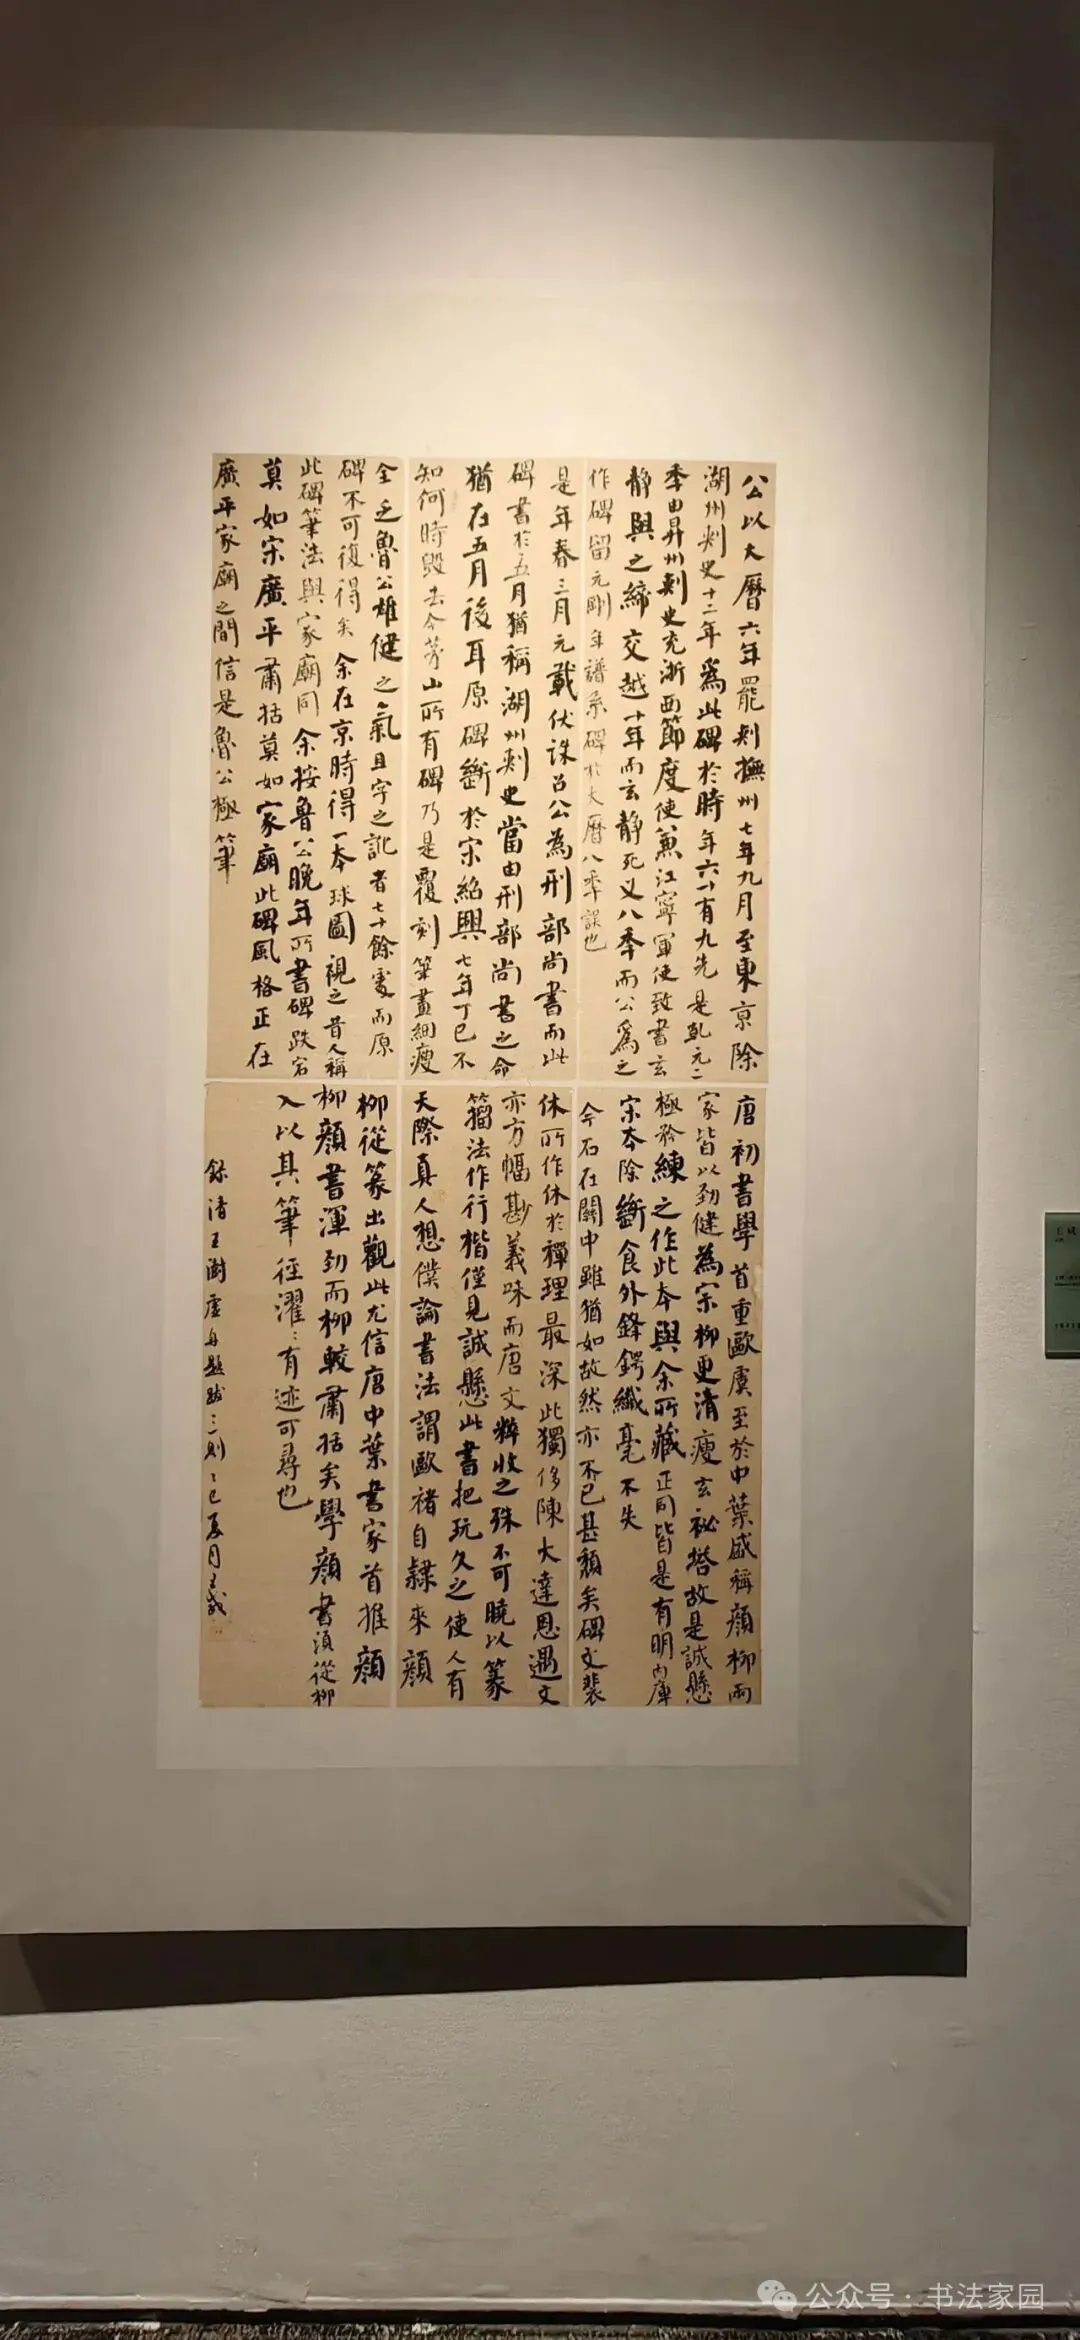 公以大曆六年罷刾撫州七年九月至東京除
湖州刾史十二年為此碑於時年六十有九先是乹元二
季由昇州刾史充浙西節度使兼江寧軍使致書玄
靜與之締交越十年而玄靜死又八季而公為之
作碑留元剛年譜系碑於大曆八季誤也
是年春三月元載伏誅召公為刑部尚書而此
碑書於五月猶稱湖州刾史當由刑部尚書之命
猶在五月後耳原碑斷於宋紹興七年丁巳不
知何時毀去今茅山所有碑乃是覆刻筆畫細瘦
全乏魯公雄健之氣且字之訛者七十餘處而原
碑不可復得矣余在京時得一本球圖視之昔人稱
此碑筆法與家廟同余按魯公晚年所書碑跌宕
莫如宋廣平肅括莫如家廟此碑風格正在
廣平家廟之間信是魯公極筆
唐初書學首重歐虞至於中葉盛稱顏柳兩
家皆以勁健為宗柳更清瘦玄祕塔故是誠懸
極矜練之作此本與余所藏正同皆是有明內庫
宋本除斷食外鋒鍔纖毫不失
今石在關中雖猶如故然亦不已甚頹矣碑文裴
休所作休於禪理最深此獨侈陳大達恩遇文
亦方幅尠義味而唐文粹收之殊不可曉以篆
籀法作行楷僅見誠懸此書把玩久之使人有
天際真人想僕論書法謂歐褚自隸來顏
柳從篆出觀此尤信唐中葉書家首推顏
柳顏書渾勁而柳較肅括矣學顏書須從柳
入以其筆徑濯：有迹可尋也
錄清王澍虛舟題跋二則乙巳夏月
公众号：书法家园